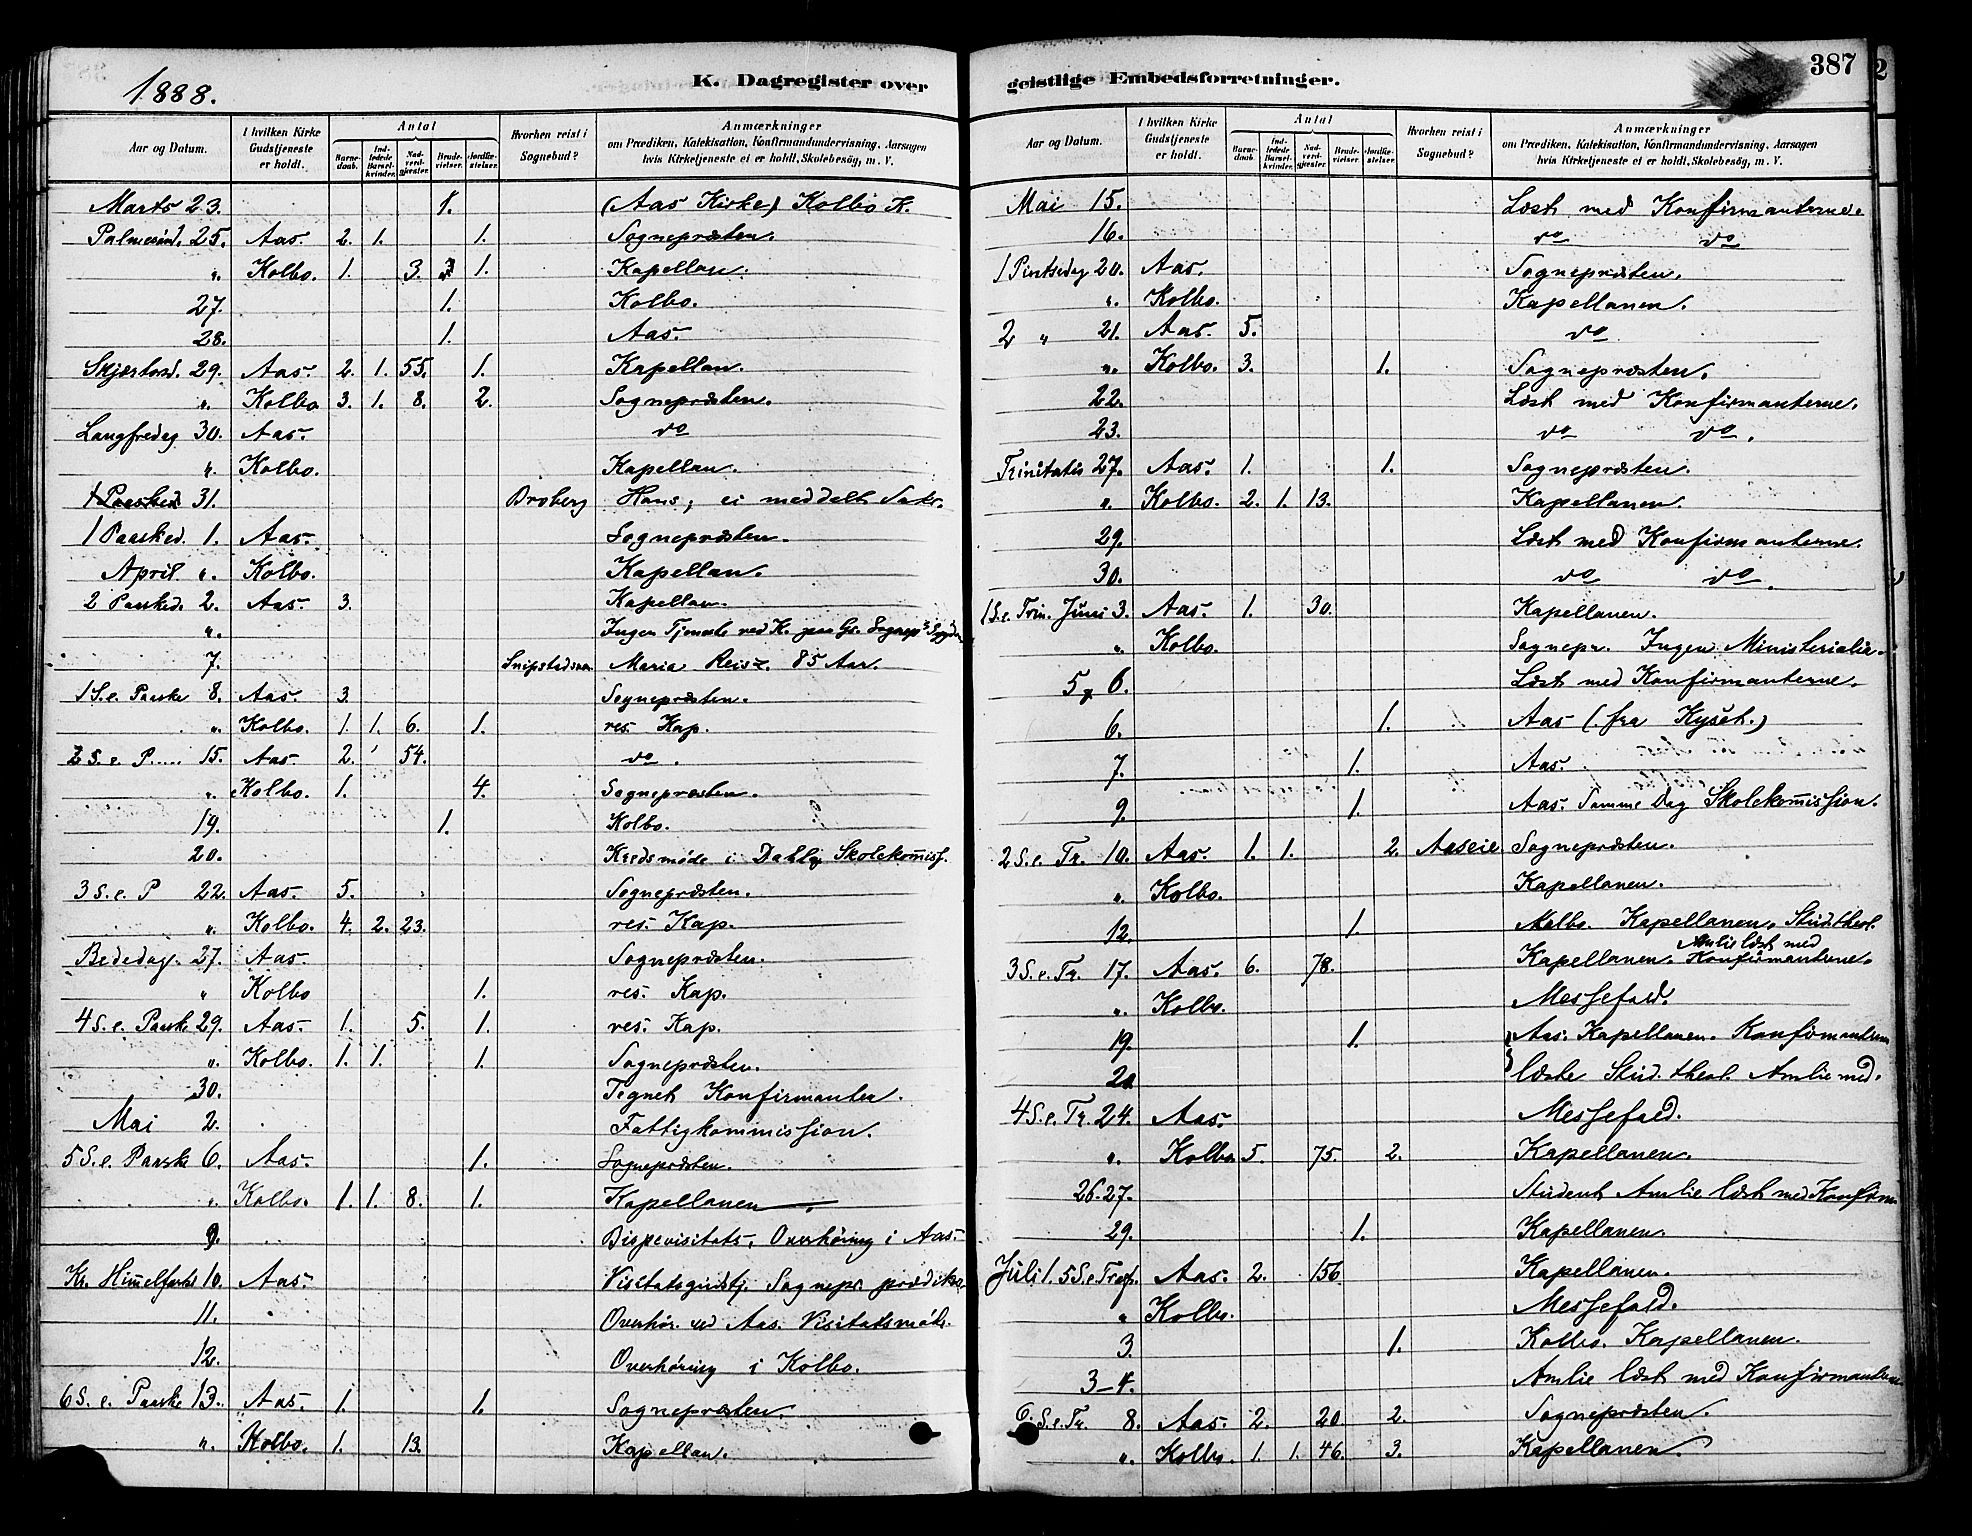 1888.
K. Dagregister over
Aar og Datum. I hvilken Kirke Gudstjeneste er holdt. Antal Barnedaab. Indledede Barselkvinder. Nadverdgjæster. Brudevielser. Jordfæstelser. Hvorhen reist i Sognebud? Anmærkninger om Prædiken, Katekisation, Konfirmandundervisning, Aarsagen hvis Kirketjeneste ei er holdt, Skolebesøg, m. V.
Marts 23. 1. (Aas Kirke) Kolbo K.
Palmesønd. 25. Aas. 2. 1. 1. Sognepræsten.
" Kolbo. 1. 3. 1. Kapellan.
27. 1. Kolbo.
28. 1. Aas.
Skjærtorsd. 29. Aas. 2. 1. 55. 1. Kapellan.
" Kolbo 3. 1. 8. 2. Sognepræsten.
Langfredag 30. Aas. do
" Kolbo. Kapellan.
31. Broberg Hans, ei meddelt Sakr.
1 Paasked. 1. Aas. Sognepræsten.
April " Kolbo. Kapellan.
2 Paasked. 2. Aas. 3. Kapellan.
" Ingen Tjeneste ved K. paa Gr. Sognep.s
7. Maria Reisz. 85 Aar.
1 S. e. Paaske 8. Aas. 3. Sognepræsten.
" Kolbo. 1. 1. 6. 1. res. Kap.
2 S. e. P..... 15. Aas 2. ' 54. do.
" Kolbo. 1. 4. Sognepræsten.
19. 1. Kolbo.
20. Kredsmøde i Dahl, Skolekomiss.
3 S. e. P 22. Aas. 5. Sognepræsten.
" Kolbo. 4. 2. 23. res. Kap.
Bededag. 27. Aas. Sognepræsten.
" Kolbo 1. res. Kap.
4 S. e. Paaske 29. Aas. 1. 5. 1. res. Kap.
" Kolbo. 1. 1. 1. Sognepræsten.
30. Tegnet Konfirmanter.
Mai 2. Fattigkommission.
5 S. e. Paaske 6. Aas. 1. Sognepræsten.
" Kolbo. 1. 1. 8. 1. Kapellanen.
9. Bispevisitats, Overhøring i Aas.
Kr. Himmelfartsd 10. Aas. Visitatsgudstj. Sognepr. prædike.
11. Overhør. ved Aas. Visitatsmøde.
12. Overhøring i Kolbo.
6 S. e. Paaske 13. Aas. 1. 1. Sognepræsten.
" Kolbo. 1. 13. Kapellan.
geistlige Embedsforretninger.
387
2
Aar og Datum. I hvilken Kirke Gudstjeneste er holdt. Antal Barnedaab. Indledede Barselkvinder. Nadverdgjæster. Brudevielser. Jordfæstelser. Hvorhen reist i Sognebud? Anmærkninger om Prædiken, Katekisation, Konfirmandundervisning, Aarsagen hvis Kirketjeneste ei er holdt, Skolebesøg, m. V.
Mai 15. Læst med Konfirmanterne.
16. do do
1 Pintsedag 20. Aas. Sognepræsten.
" Kolbo. Kapellanen.
2 " 21. Aas. 5. do
" Kolbo. 3. 1. Sognepræsten.
22. Læst med Konfirmanterne.
23. do do.
Trinitatis 27. Aas. 1. 1. Sognepræsten.
" Kolbo. 2. 1. 13. Kapellanen.
29. Læst med Konfirmanterne.
30. do do.
1 S. e. Trin. Juni 3. Aas. 1. 30. Kapellanen.
" Kolbo. Sognepr. Ingen Ministerialia.
5 6. Læst med Konfirmanterne.
6. 1. Aas (fra Kyset.)
7. 1. Aas.
9. 1. Aas. Samme Dag Skolekomission.
2 S. e. Tr. 10. Aas. 1. 1. 2. Aaseie Sognepræsten.
" Kolbo. Kapellanen.
12. 1. Kolbo. Kapellanen. Stud. theol.
3 S. e. Tr. 17. Aas. 6. 78. Kapellanen. Amlie læst med Konfirmanterne.
" Kolbo. Messefald.
19. 1. Aas. Kapellanen. Konfirmanterne
20 læste Stud. theol. Amlie med.
4 S. e. Tr. 24. Aas. Messefald.
" Kolbo. 5. 75. 2. Kapellanen.
26. 27. Student Amlie læst med Konfirm.
29. 1. Kapellanen.
Juli 1. 5 S. e. Tr. Aas. 2. 156 Kapellanen.
" Kolbo. Messefald.
3. 1. Kolbo. Kapellanen.
3-4. Amlie læst med Konfirmanterne
6. S. e. Tr. 8. Aas. 2. 20. 2. Sognepræsten.
" Kolbo. 1. 1. 46. 3. Kapellanen.